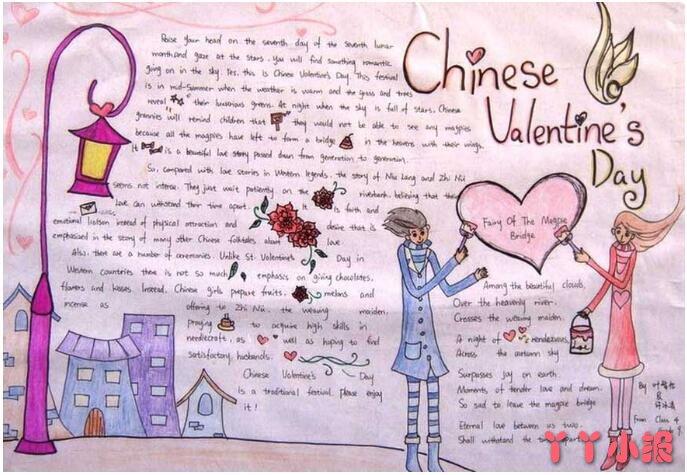 Chinese
Valentine's
Day
Raise your head on the seventh day of the seventh lunar
month and gaze at the stars. You will find something romantic
going on in the sky. Yes, this is Chinese Valentine's Day. This festival
is in mid-summer when the weather is warm and the grass and trees
reveal their luxurious greens. At night when the sky is full of stars, Chinese
grannies will remind children that they would not be able to see any magpies
because all the magpies have left to form a bridge in the heavens with their wings.
It is a beautiful love story passed down from generation to generation.
So, compared with love stories in Western legends, the story of Niu Lang and Zhi Nü
seems not intense. They just wait patiently on the riverbank, believing that their
love can withstand their time apart. It is faith and
emotional liaison instead of physical attraction and desire that is
emphasized in the story of many other Chinese folktales about love
Also, there are a number of ceremonies. Unlike St. Valentine's Day in
Western countries there is not so much emphasis on giving chocolates,
flowers and kisses. Instead, Chinese girls prepare fruits, melons and
incense as offering to Zhi Nü, the weaving maiden,
praying to acquire high skills in
needlecraft, as well as hoping to find
satisfactory husbands.
Chinese Valentine's Day
is a traditional festival. Please enjoy
it!
Fairy Of The Magpie
Bridge
Among the beautiful clouds,
Over the heavenly river,
Crosses the weaving maiden.
A night of rendezvous,
Across the autumn sky
Surpasses joy on earth.
Moments of tender love and dream,
So sad to leave the magpie bridge.
Eternal love between us two,
Shall withstand the time apart.
By
&
From Class 4
丫丫小报